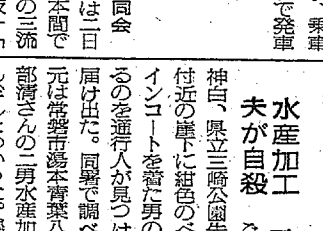 、乗車
で発車
同会
は二日
本間で
の三流
水産加工
夫が自殺
神白、県立三崎公園
付近の崖下に紺色のベ
インコートを着た男の
るのを通行人が見つけ
届け出た。同署で調べ
元は常磐市湯本青葉八
部清さんの二男水産加